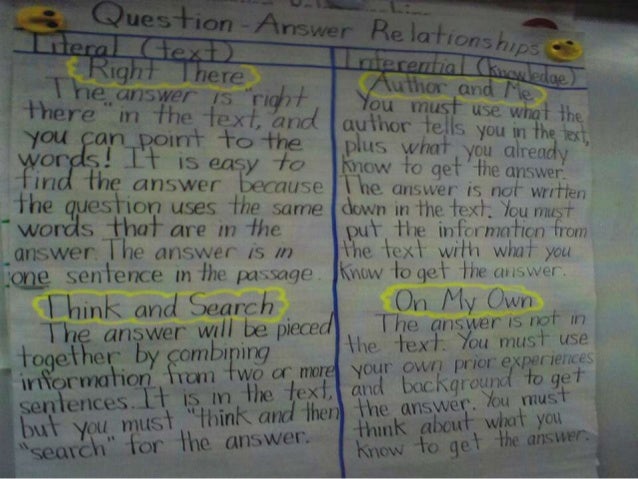 Question-Answer Relationships
Literal (text)
Right There
The answer is "right
there" in the text, and
you can point to the
words! It is easy to
find the answer because
the question uses the same
words that are in the
answer. The answer is in
one sentence in the passage.
Think and Search
The answer will be pieced
together by combining
information from two or more
sentences. It is in the text,
but you must "think and then
"search" for the answer.
Inferential (Knowledge)
Author and Me
You must use what the
author tells you in the text,
plus what you already
know to get the answer.
The answer is not written
down in the text. You must
put the information from
the text with what you
know to get the answer.
On My Own
The answer is not in
the text. You must use
your own prior experiences
and background to get
the answer. You must
think about what you
know to get the answer.